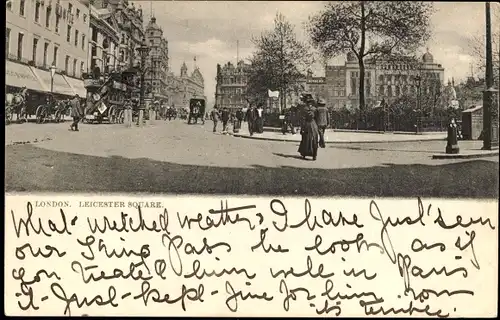 LONDON. LEICESTER SQUARE.
What wretched weather. I have Just seen
our King Pats he looks as if
you treated him well in Paris
it Just kept fine for him now
its terrible.